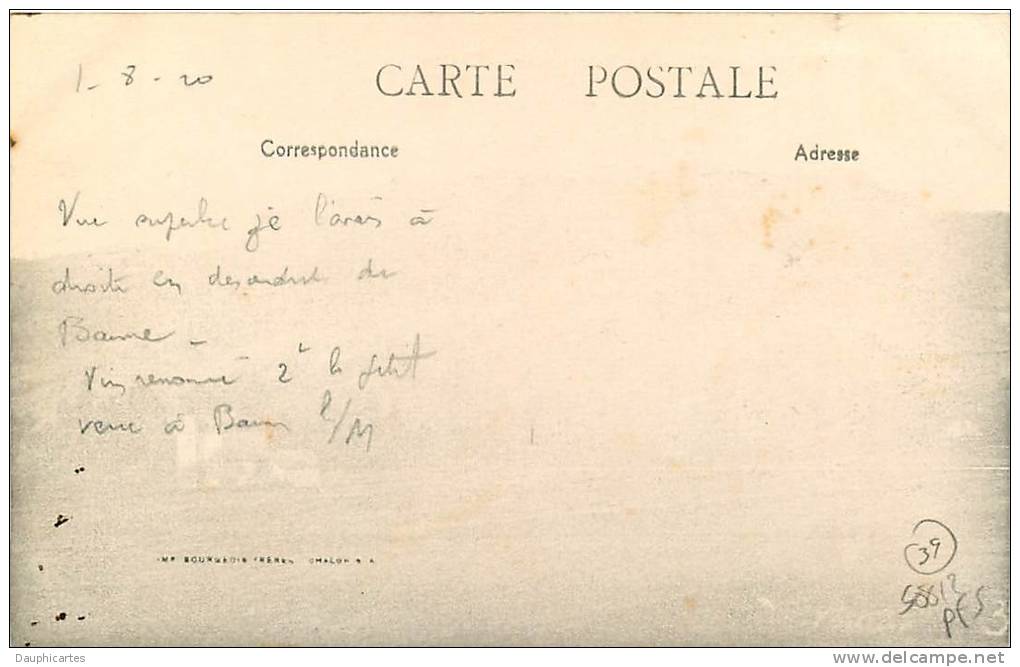 1-8-20
CARTE POSTALE
Correspondance
Adresse
Vue superbe je l'avais à
droite en descendant de
Baume -
Vin renommé 2 le petit
verre à Baume l/M
IMP BOURGEOIS FRÈRES CHALON S S
39
58812
PF5
Dauphicartes
www.delcampe.net